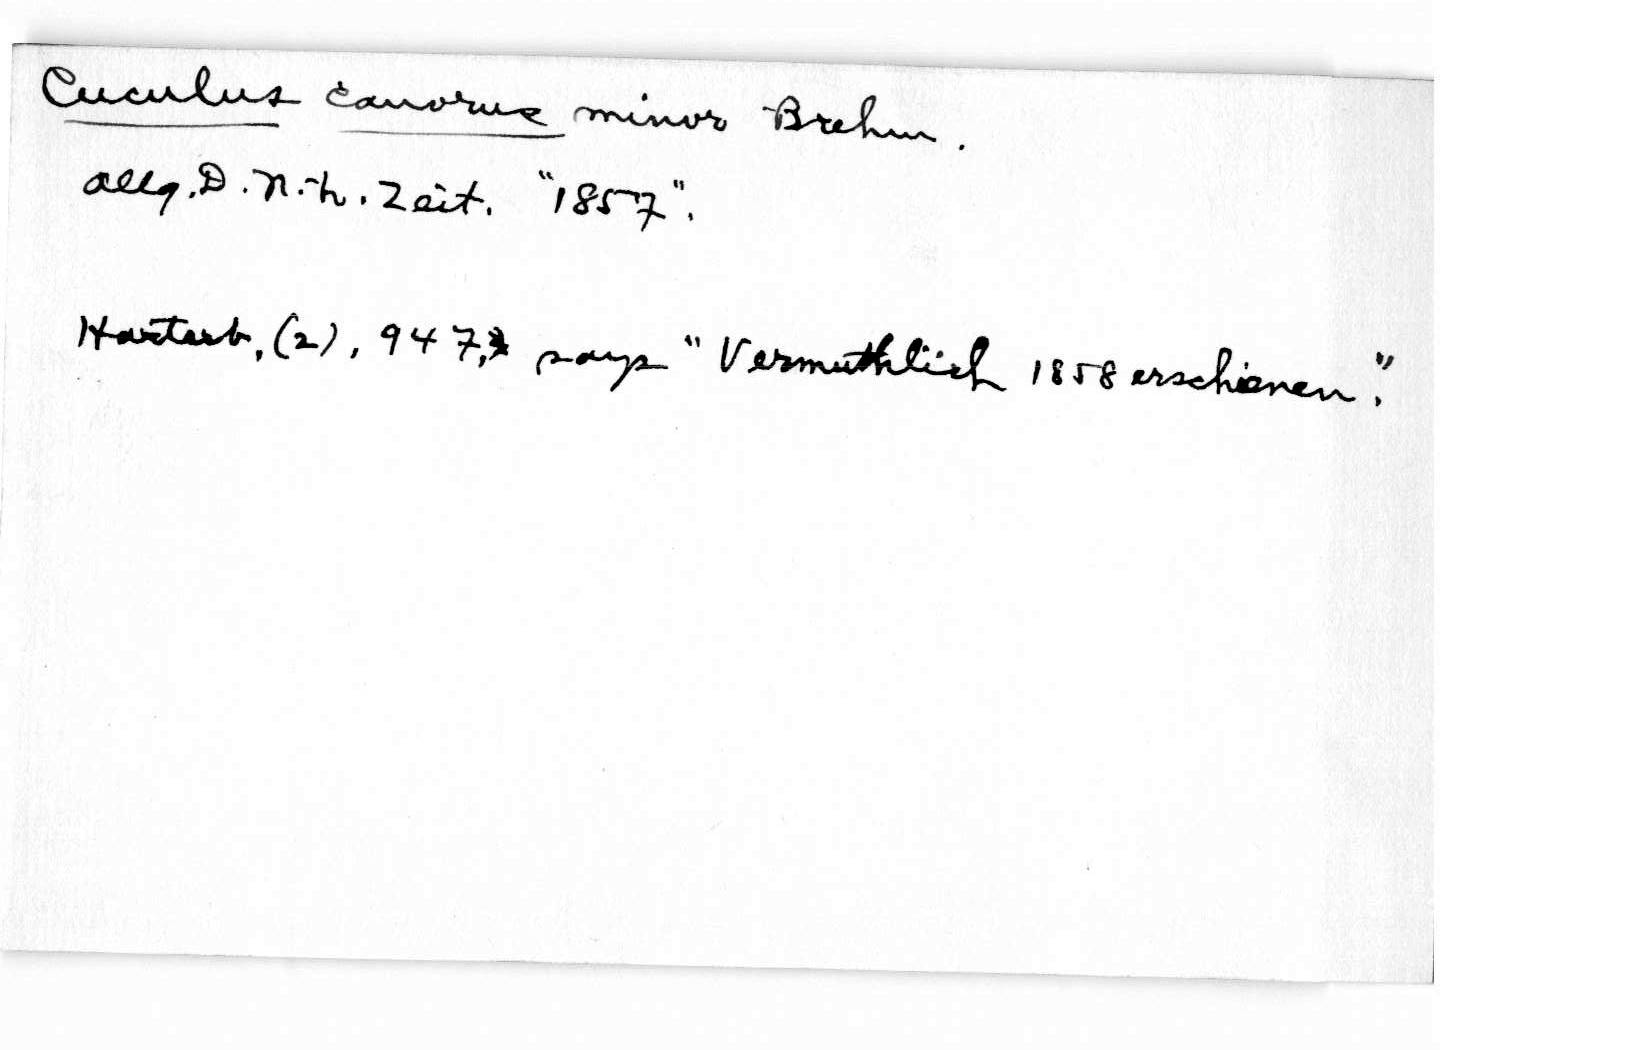 Cuculus canorus minor Brehm.
Allg. D. N.-h. Zeit. "1857".
Hartert, (2), 947, says "Vermuthlich 1858 erschienen."